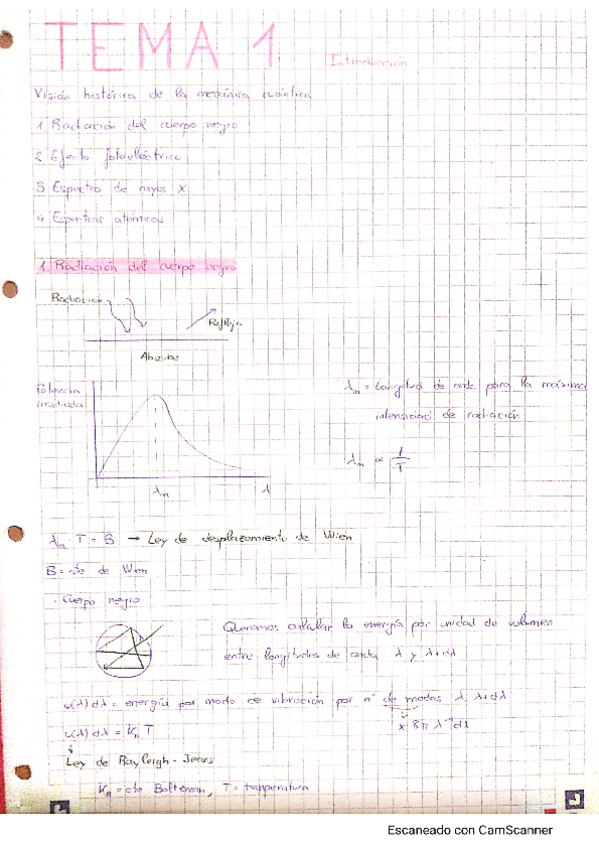 TEMA 1 Introducción
Visión histórica de la mecánica cuántica
1. Radiación del cuerpo negro
2. Efecto fotoeléctrico
3 Espectro de rayos X
4. Espectros atómicos
1. Radiación del cuerpo negro
Radiación
Refleja
Potencia
irradiada
λm λ
λm = Longitud de onda para la máxima
intensidad de radiación
λm ∝ 1/T
λm · T = B → Ley de desplazamiento de Wien
B = cte de Wien
Cuerpo negro
Queremos calcular la energía por unidad de volumen
entre longitudes de onda λ y λ+dλ
u(λ) dλ = energía por modo de vibración por nº de modos λ, λ+dλ
x 8π λ⁻⁴dλ
u(λ) dλ = KB T
Ley de Rayleigh-Jeans
KB = cte Boltzman, T = temperatura
Escaneado con CamScanner